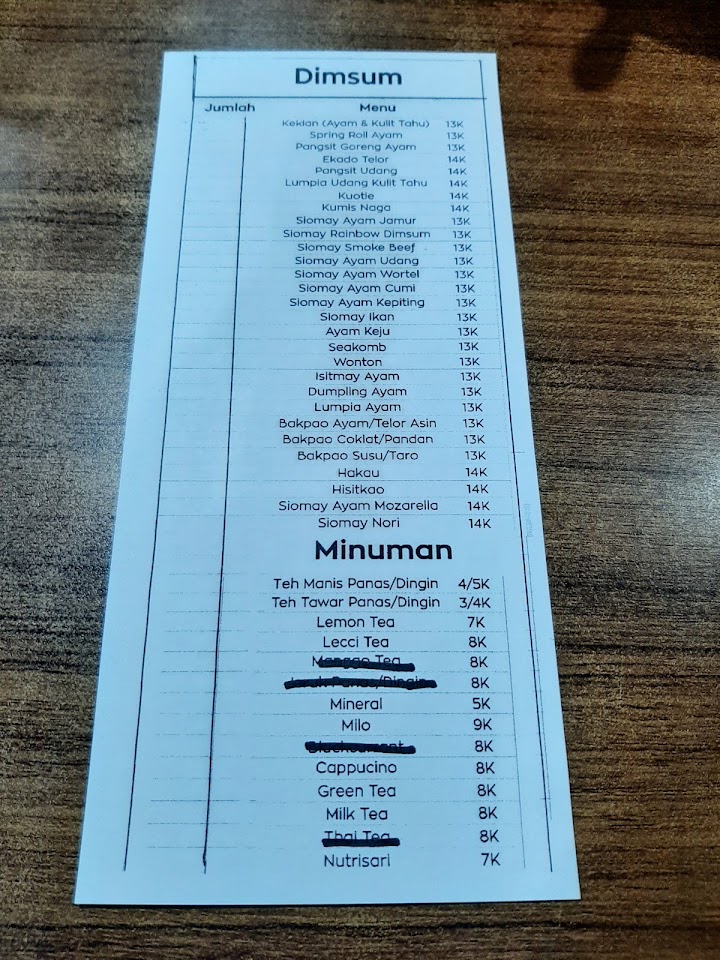 Dimsum
Jumlah Menu
Keklan (Ayam & Kulit Tahu) 13K
Spring Roll Ayam 13K
Pangsit Goreng Ayam 13K
Ekado Telor 14K
Pangsit Udang 14K
Lumpia Udang Kulit Tahu 14K
Kuotie 14K
Kumis Naga 14K
Siomay Ayam Jamur 13K
Siomay Rainbow Dimsum 13K
Siomay Smoke Beef 13K
Siomay Ayam Udang 13K
Siomay Ayam Wortel 13K
Siomay Ayam Cumi 13K
Siomay Ayam Kepiting 13K
Siomay Ikan 13K
Ayam Keju 13K
Seakomb 13K
Wonton 13K
Isitmay Ayam 13K
Dumpling Ayam 13K
Lumpia Ayam 13K
Bakpao Ayam/Telor Asin 13K
Bakpao Coklat/Pandan 13K
Bakpao Susu/Taro 13K
Hakau 14K
Hisitkao 14K
Siomay Ayam Mozarella 14K
Siomay Nori 14K
Minuman
Teh Manis Panas/Dingin 4/5K
Teh Tawar Panas/Dingin 3/4K
Lemon Tea 7K
Lecci Tea 8K
Mango Tea 8K
Jeruk Panas/Dingin 8K
Mineral 5K
Milo 9K
Blackcurrant 8K
Cappucino 8K
Green Tea 8K
Milk Tea 8K
Thai Tea 8K
Nutrisari 7K